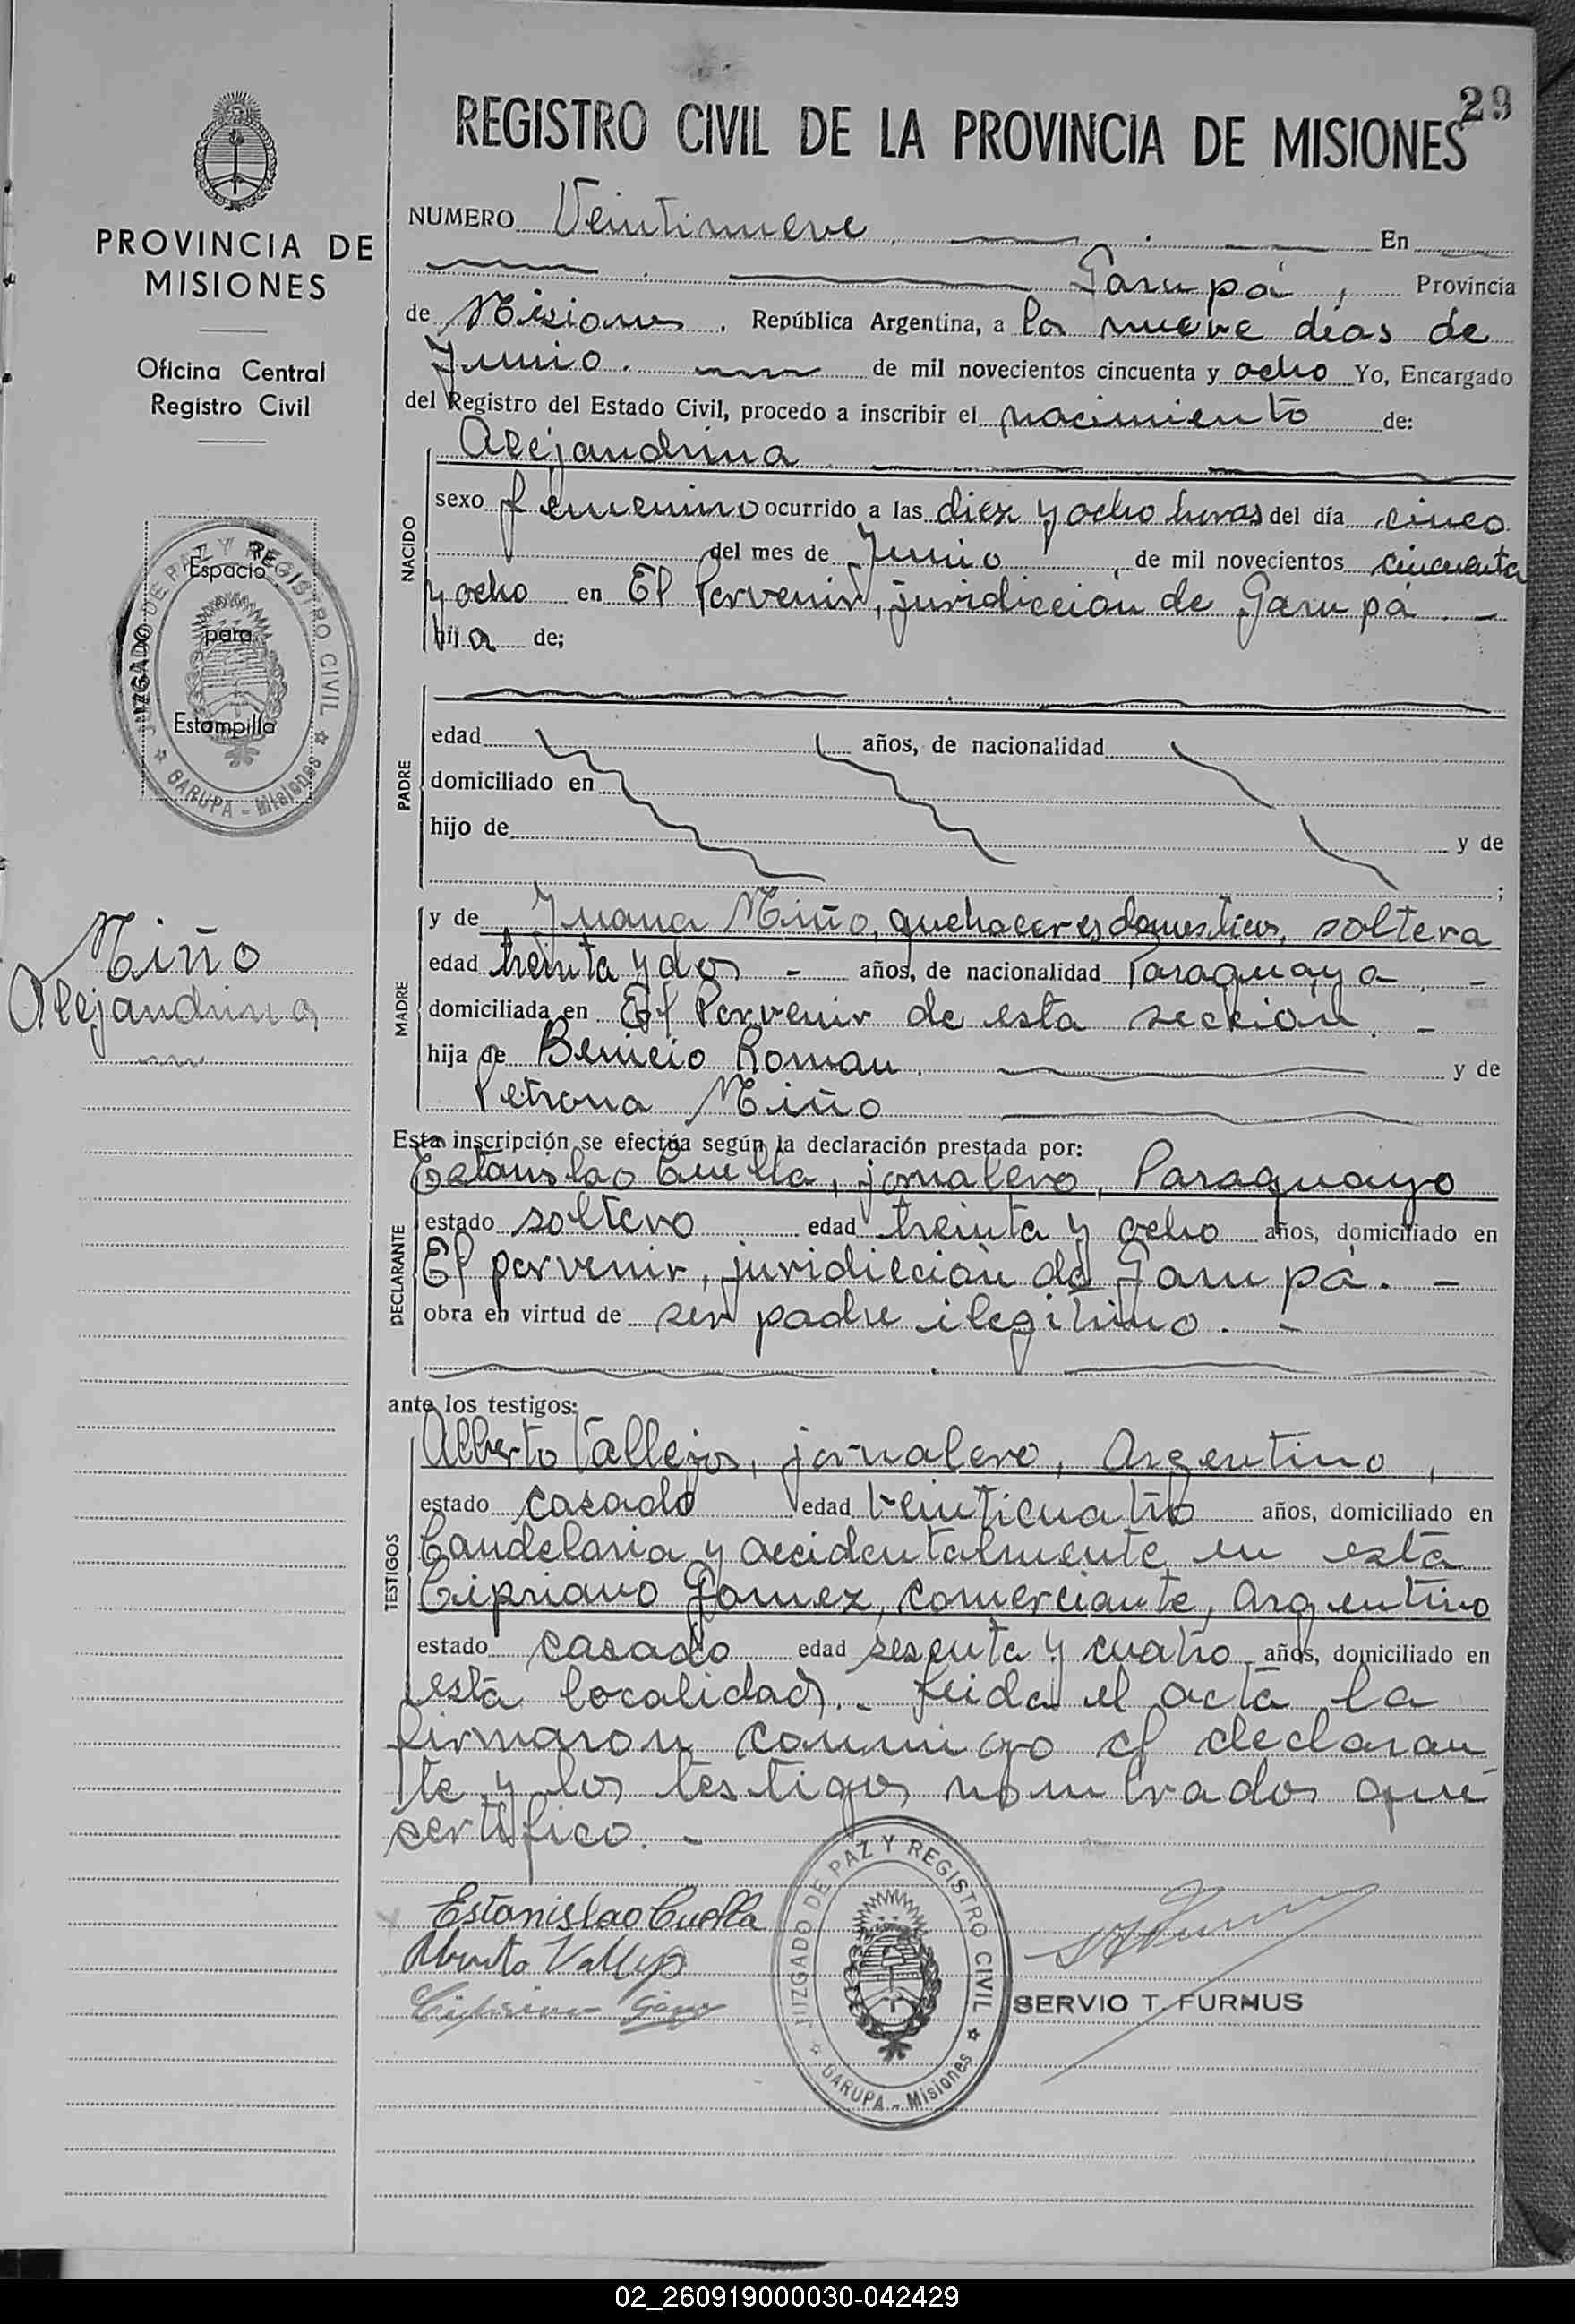 29
REGISTRO CIVIL DE LA PROVINCIA DE MISIONES
PROVINCIA DE
MISIONES
Oficina Central
Registro Civil
JUZGADO DE PAZ Y REGISTRO CIVIL
GARUPA - Misiones
Espacio
para
Estampilla
Miño
Alejandrina
NUMERO Veintinueve En
Garupá, Provincia
de Misiones. República Argentina, a los nueve días de
Junio. de mil novecientos cincuenta y ocho Yo, Encargado
del Registro del Estado Civil, procedo a inscribir el nacimiento de:
Alejandrina
NACIDO
sexo femenino ocurrido a las diez y ocho horas del día cinco
del mes de Junio, de mil novecientos cincuenta
y ocho en El Porvenir, juridiccion de Garupá. -
hija de;
PADRE
edad años, de nacionalidad
domiciliado en
hijo de y de
;
MADRE
y de Juana Miño, quehaceres domesticos, soltera
edad treinta y dos - años, de nacionalidad Paraguaya. -
domiciliada en El Porvenir de esta seccion. -
hija de Benicio Roman. y de
Petrona Miño
Esta inscripción se efectúa según la declaración prestada por:
DECLARANTE
Estanislao Cuella, jornalero, Paraguayo
estado soltero edad treinta y ocho años, domiciliado en
El porvenir, juridiccion de Garupá. -
obra en virtud de ser padre ilegitimo. -
ante los testigos:
TESTIGOS
Alberto Vallejos, jornalero, Argentino,
estado casado edad veinticuatro años, domiciliado en
Candelaria y accidentalmente en esta
Cipriano Gomez, comerciante, Argentino
estado casado edad sesenta y cuatro años, domiciliado en
esta localidad. - Leida el acta la
firmaron conmigo el declaran
te y los testigos nombrados que
certifico. -
Estanislao Cuella
Alberto Vallejo
Cipriano Gomez
JUZGADO DE PAZ Y REGISTRO CIVIL
GARUPA - Misiones
SERVIO T. FURNUS
02_260919000030-042429